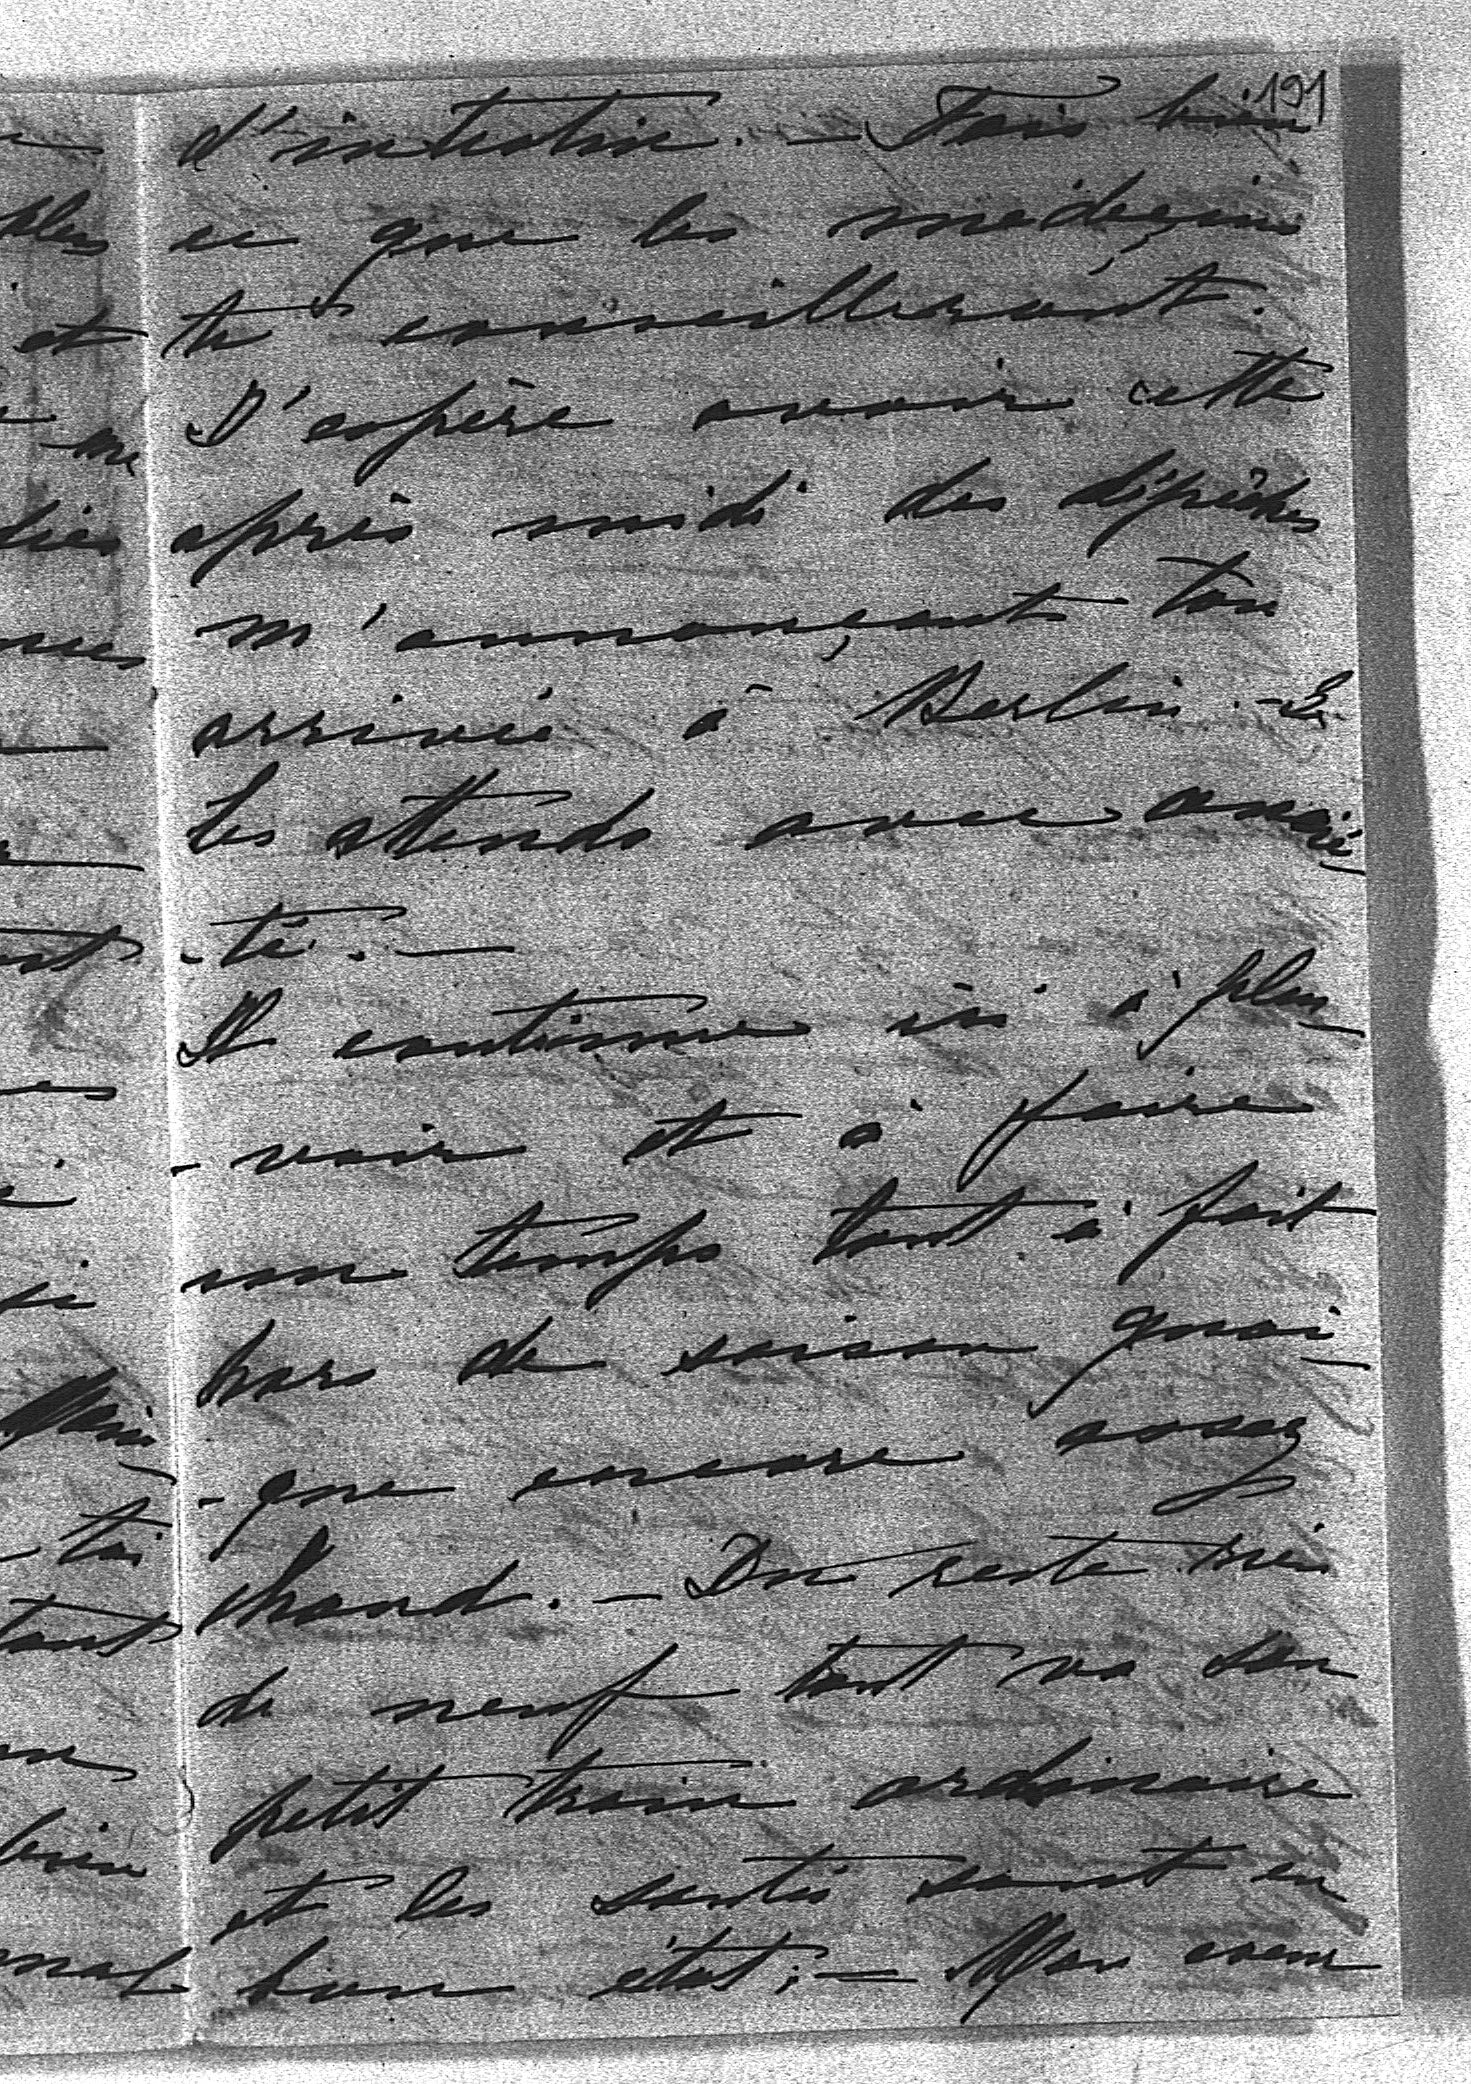 191
d'intestin. — Fais bien
ce que les médeçins
te conseilleront.
J'espère avoir cette
après midi des dépêches
m'annonçant ton
arrivée à Berlin. - Je
les attends avec anxié
-té. —
Il continue ici à pleu
-voir et à faire
un temps tout à fait
hors de saison quoi
-que encore assez
chaud. — Du reste rien
de neuf tout va son
petit train ordinaire
et les santés sont en
bon état; — Mon coeur